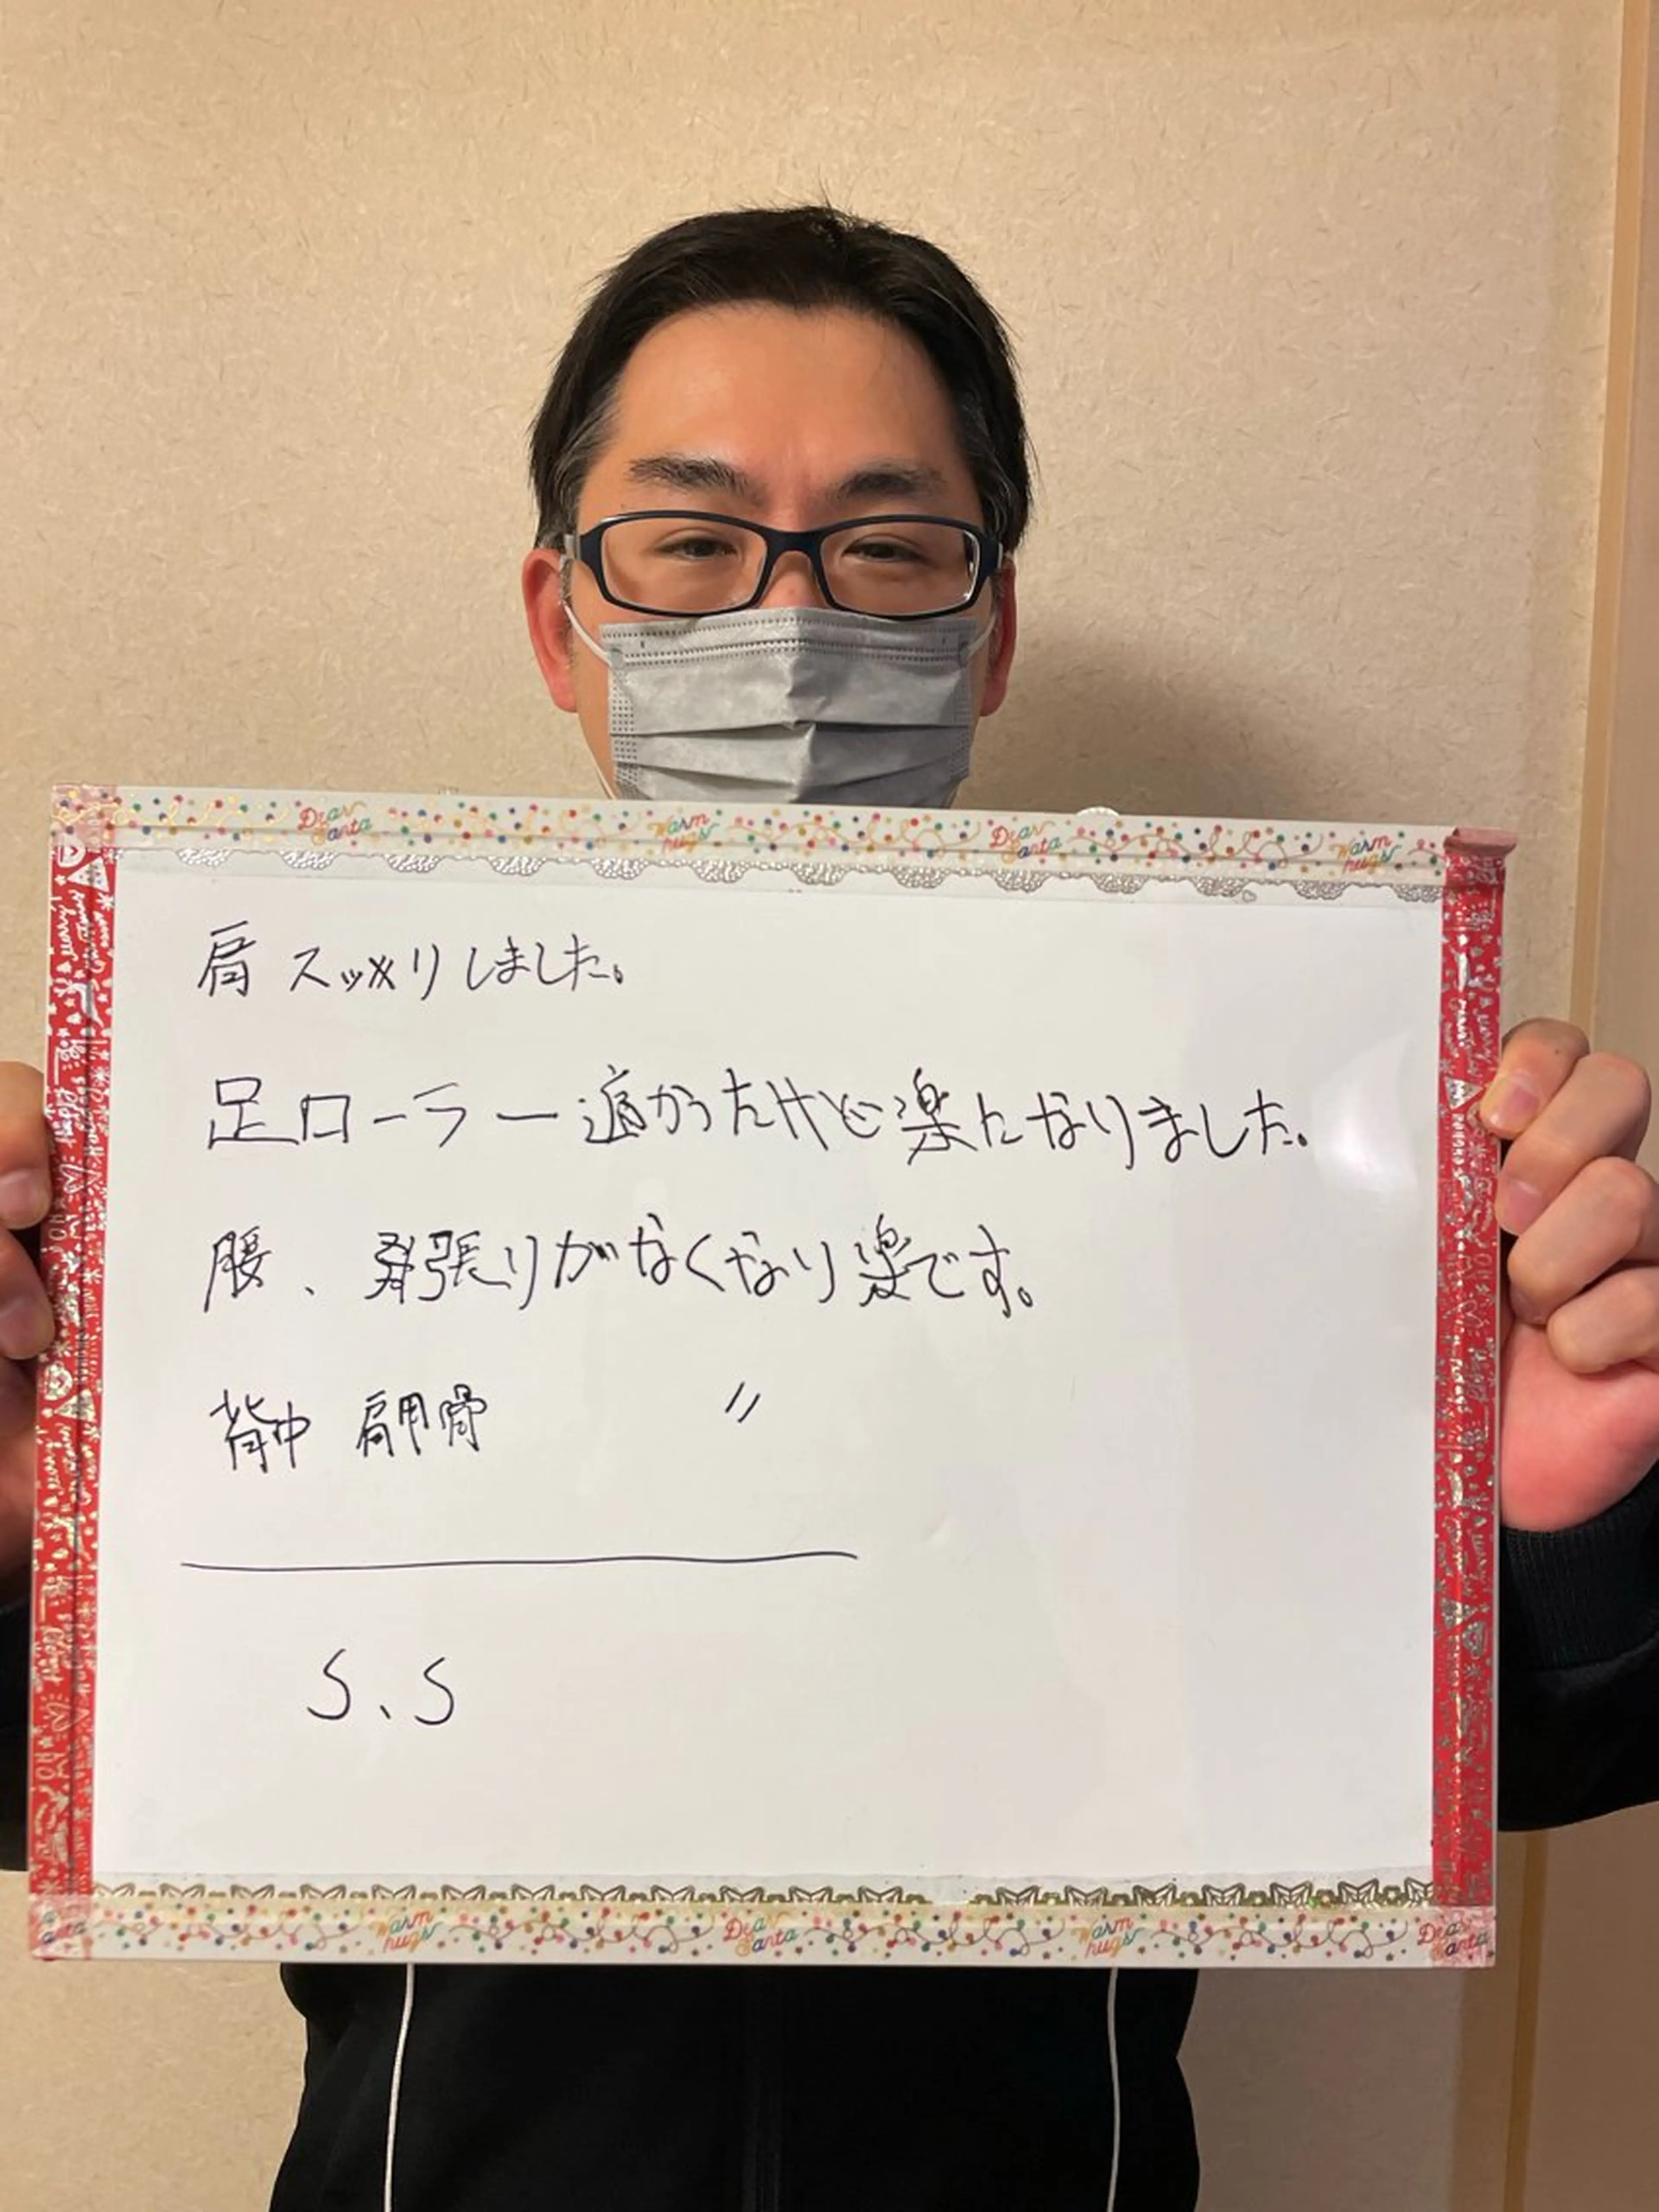 Dear Santa Warm hugs Dear Santa Warm hugs
肩 スッキリしました。
足ローラー痛かったけど楽になりました。
腰、張りがなくなり楽です。
背中 肩甲骨 〃
S、S
Warm hugs Dear Santa Warm hugs Dear Santa